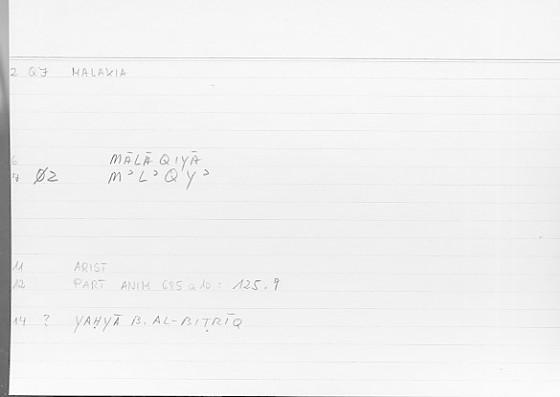 2 QJ MALAKIA
6 MĀLĀQIYĀ
7 Ø2 MʾLʾQYʾ
11 ARIST
12 PART ANIM 685 a 10 : 125.9
14 ? YAḤYĀ B. AL-BIṬRĪQ